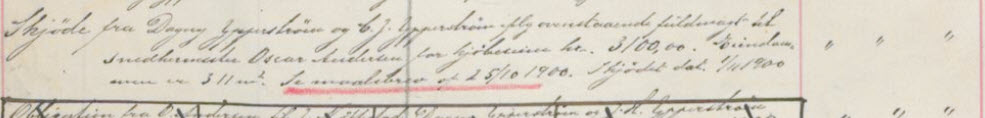 Skjöde fra Dagny Epperström og C. J. Epperström iflg ovenstaaende fuldmagt til
snedkermester Oscar Andersen for kjöbesum kr. 3100,00. Eiendom-
men er 311 m². Se maalebrev af 25/10 1900. Skjödet dat. 1/11 1900 " " "
Obligation fra O. Andersen til Dagny Epperström og Epperström " "